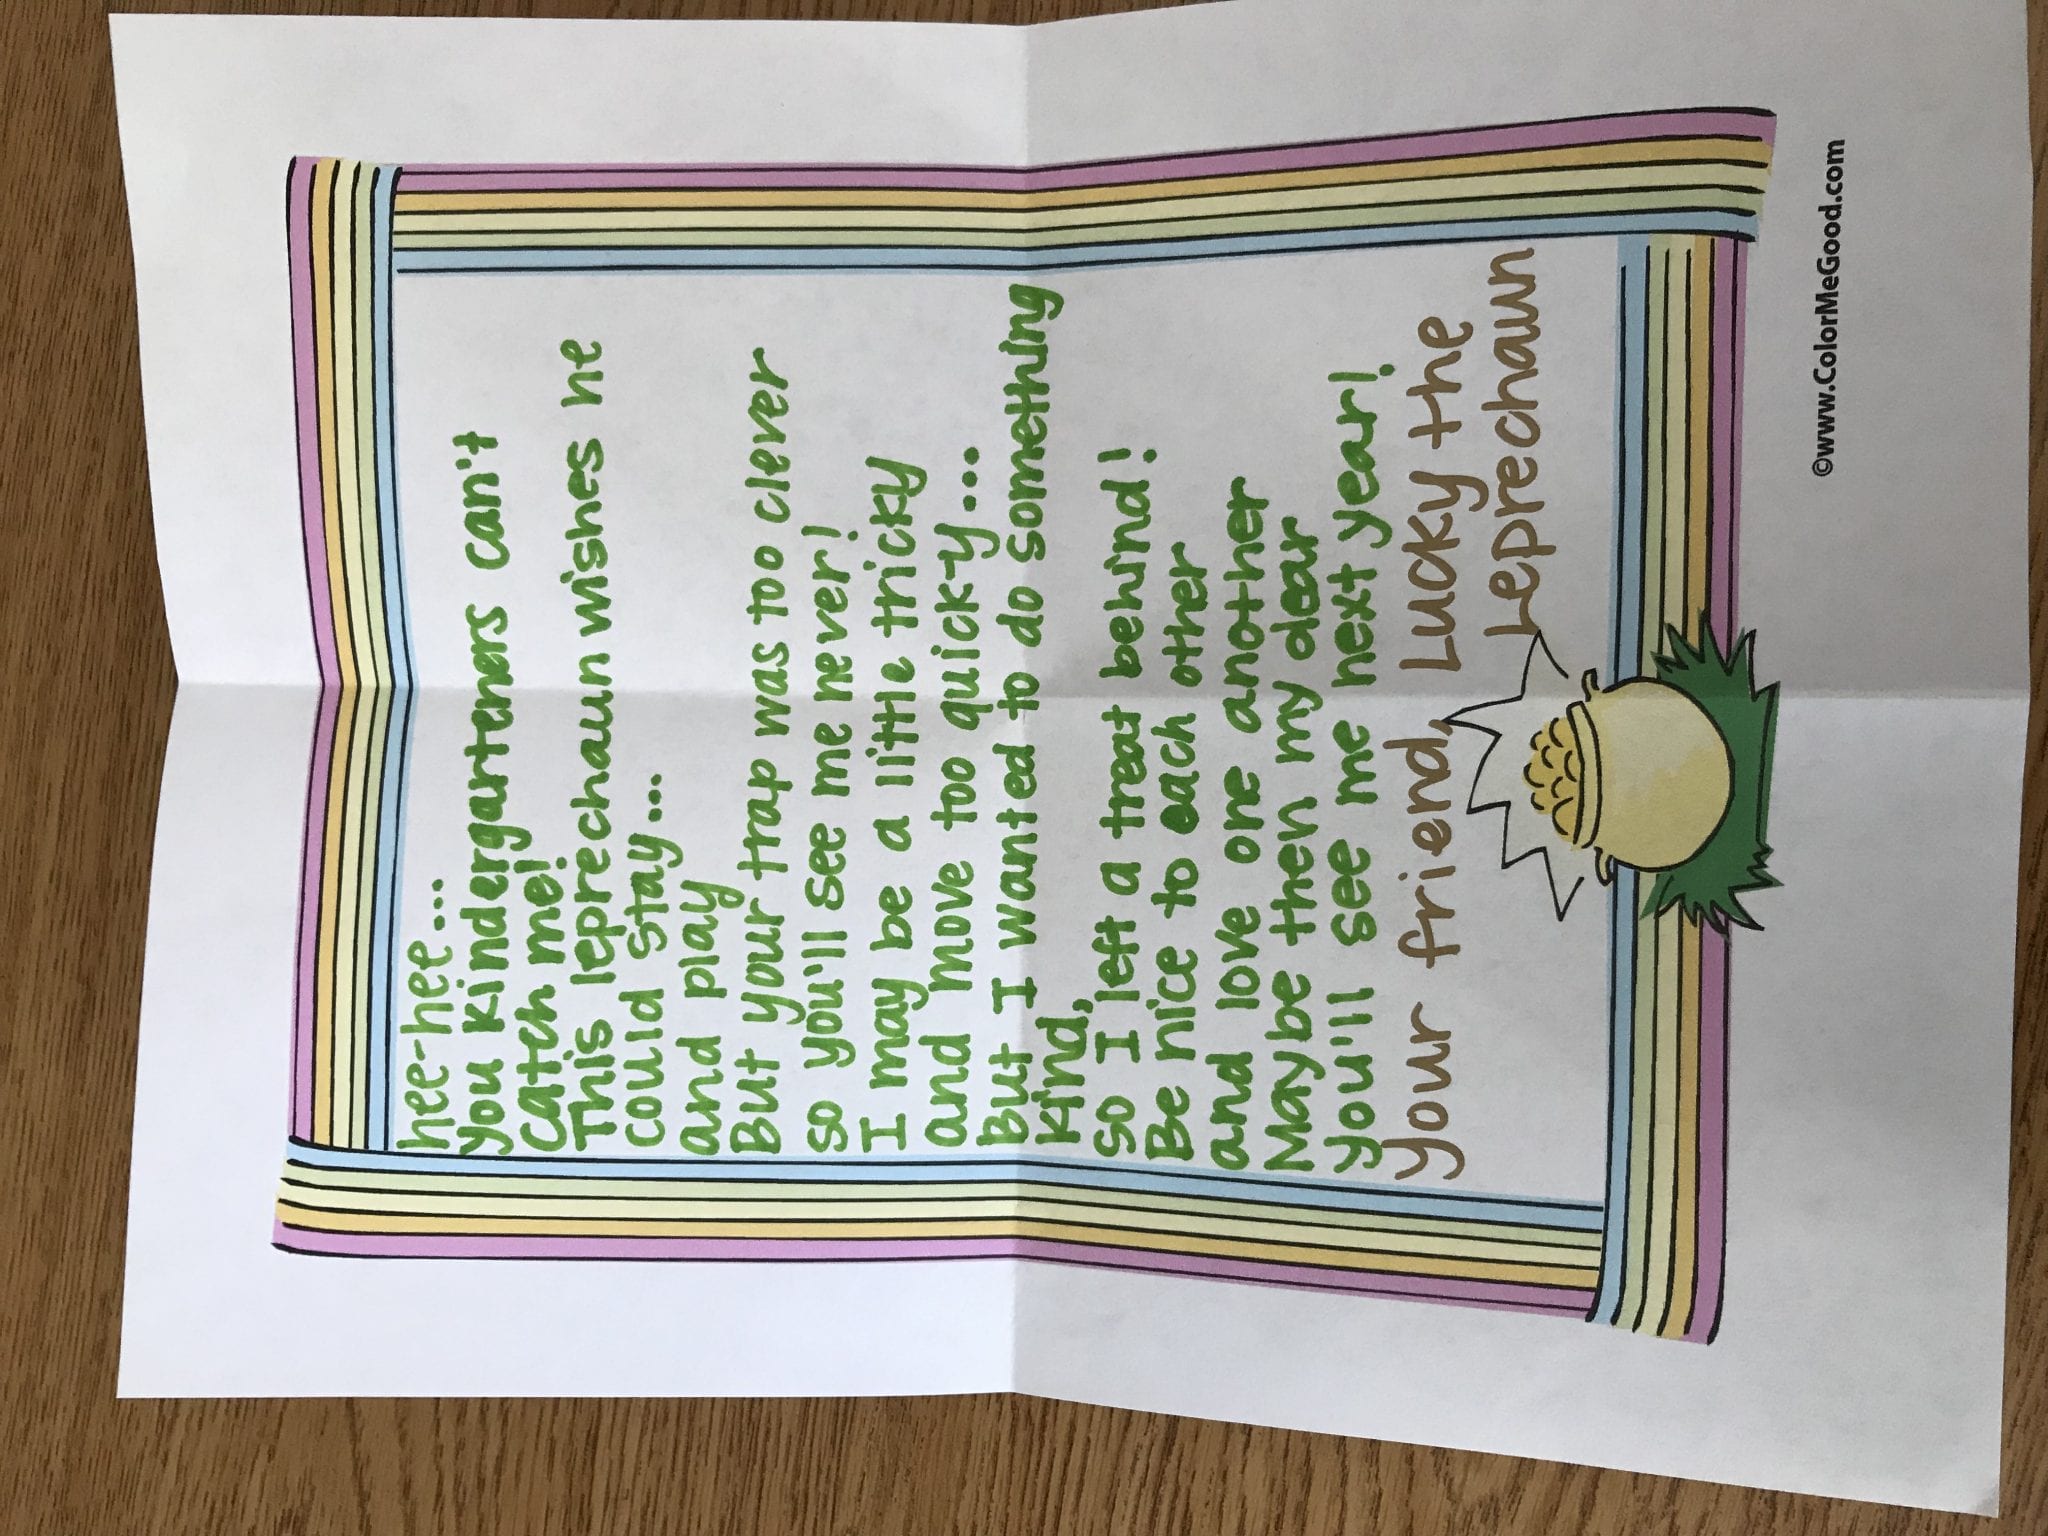 hee-hee...
you kindergarteners can't
catch me!
This leprechaun wishes he
could stay...
and play
But your trap was too clever
so you'll see me never!
I may be a little tricky
and move too quicky...
But I wanted to do something
kind,
so I left a treat behind!
Be nice to each other
and love one another
Maybe then my dear
you'll see me next year!
your friend, Lucky the
Leprechaun
©www.ColorMeGood.com